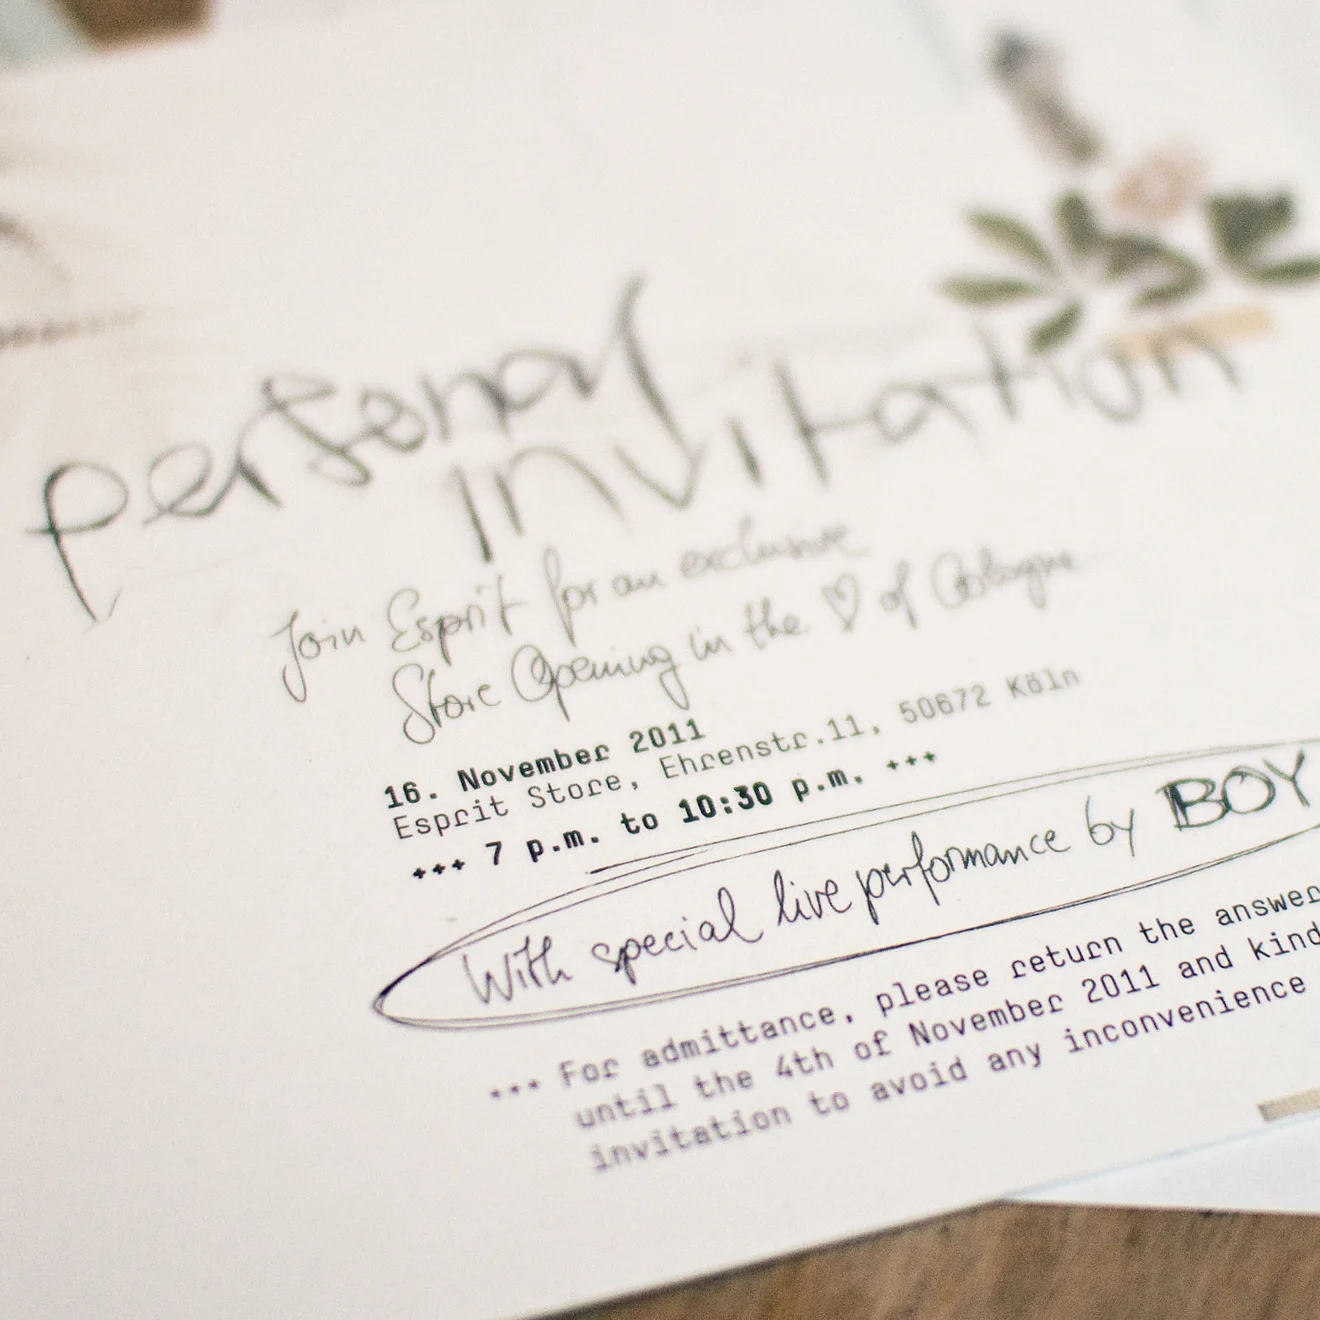 personal
invitation
Join Esprit for an exclusive
Store Opening in the ♡ of Cologne
16. November 2011
Esprit Store, Ehrenstr.11, 50672 Köln
+++ 7 p.m. to 10:30 p.m. +++
With special live performance by BOY
+++ For admittance, please return the answer
until the 4th of November 2011 and kind
invitation to avoid any inconvenience